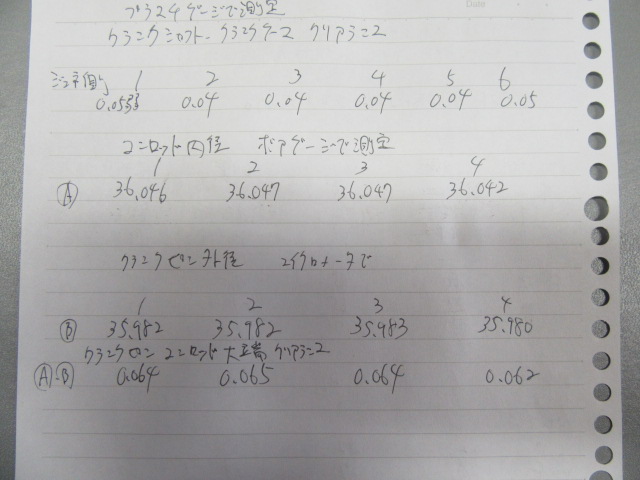 プラスチゲージで測定
クランクシャフト. クランクケース クリアランス
ジェネ側 1 2 3 4 5 6
0.04 0.04 0.04 0.04 0.05
コンロッド内径 ボアゲージで測定
1 2 3 4
Ⓐ 36.046 36.047 36.047 36.042
クランクピン外径 マイクロメータで
1 2 3 4
Ⓑ 35.982 35.982 35.983 35.980
クランクピン コンロッド大端 クリアランス
Ⓐ-Ⓑ 0.064 0.065 0.064 0.062